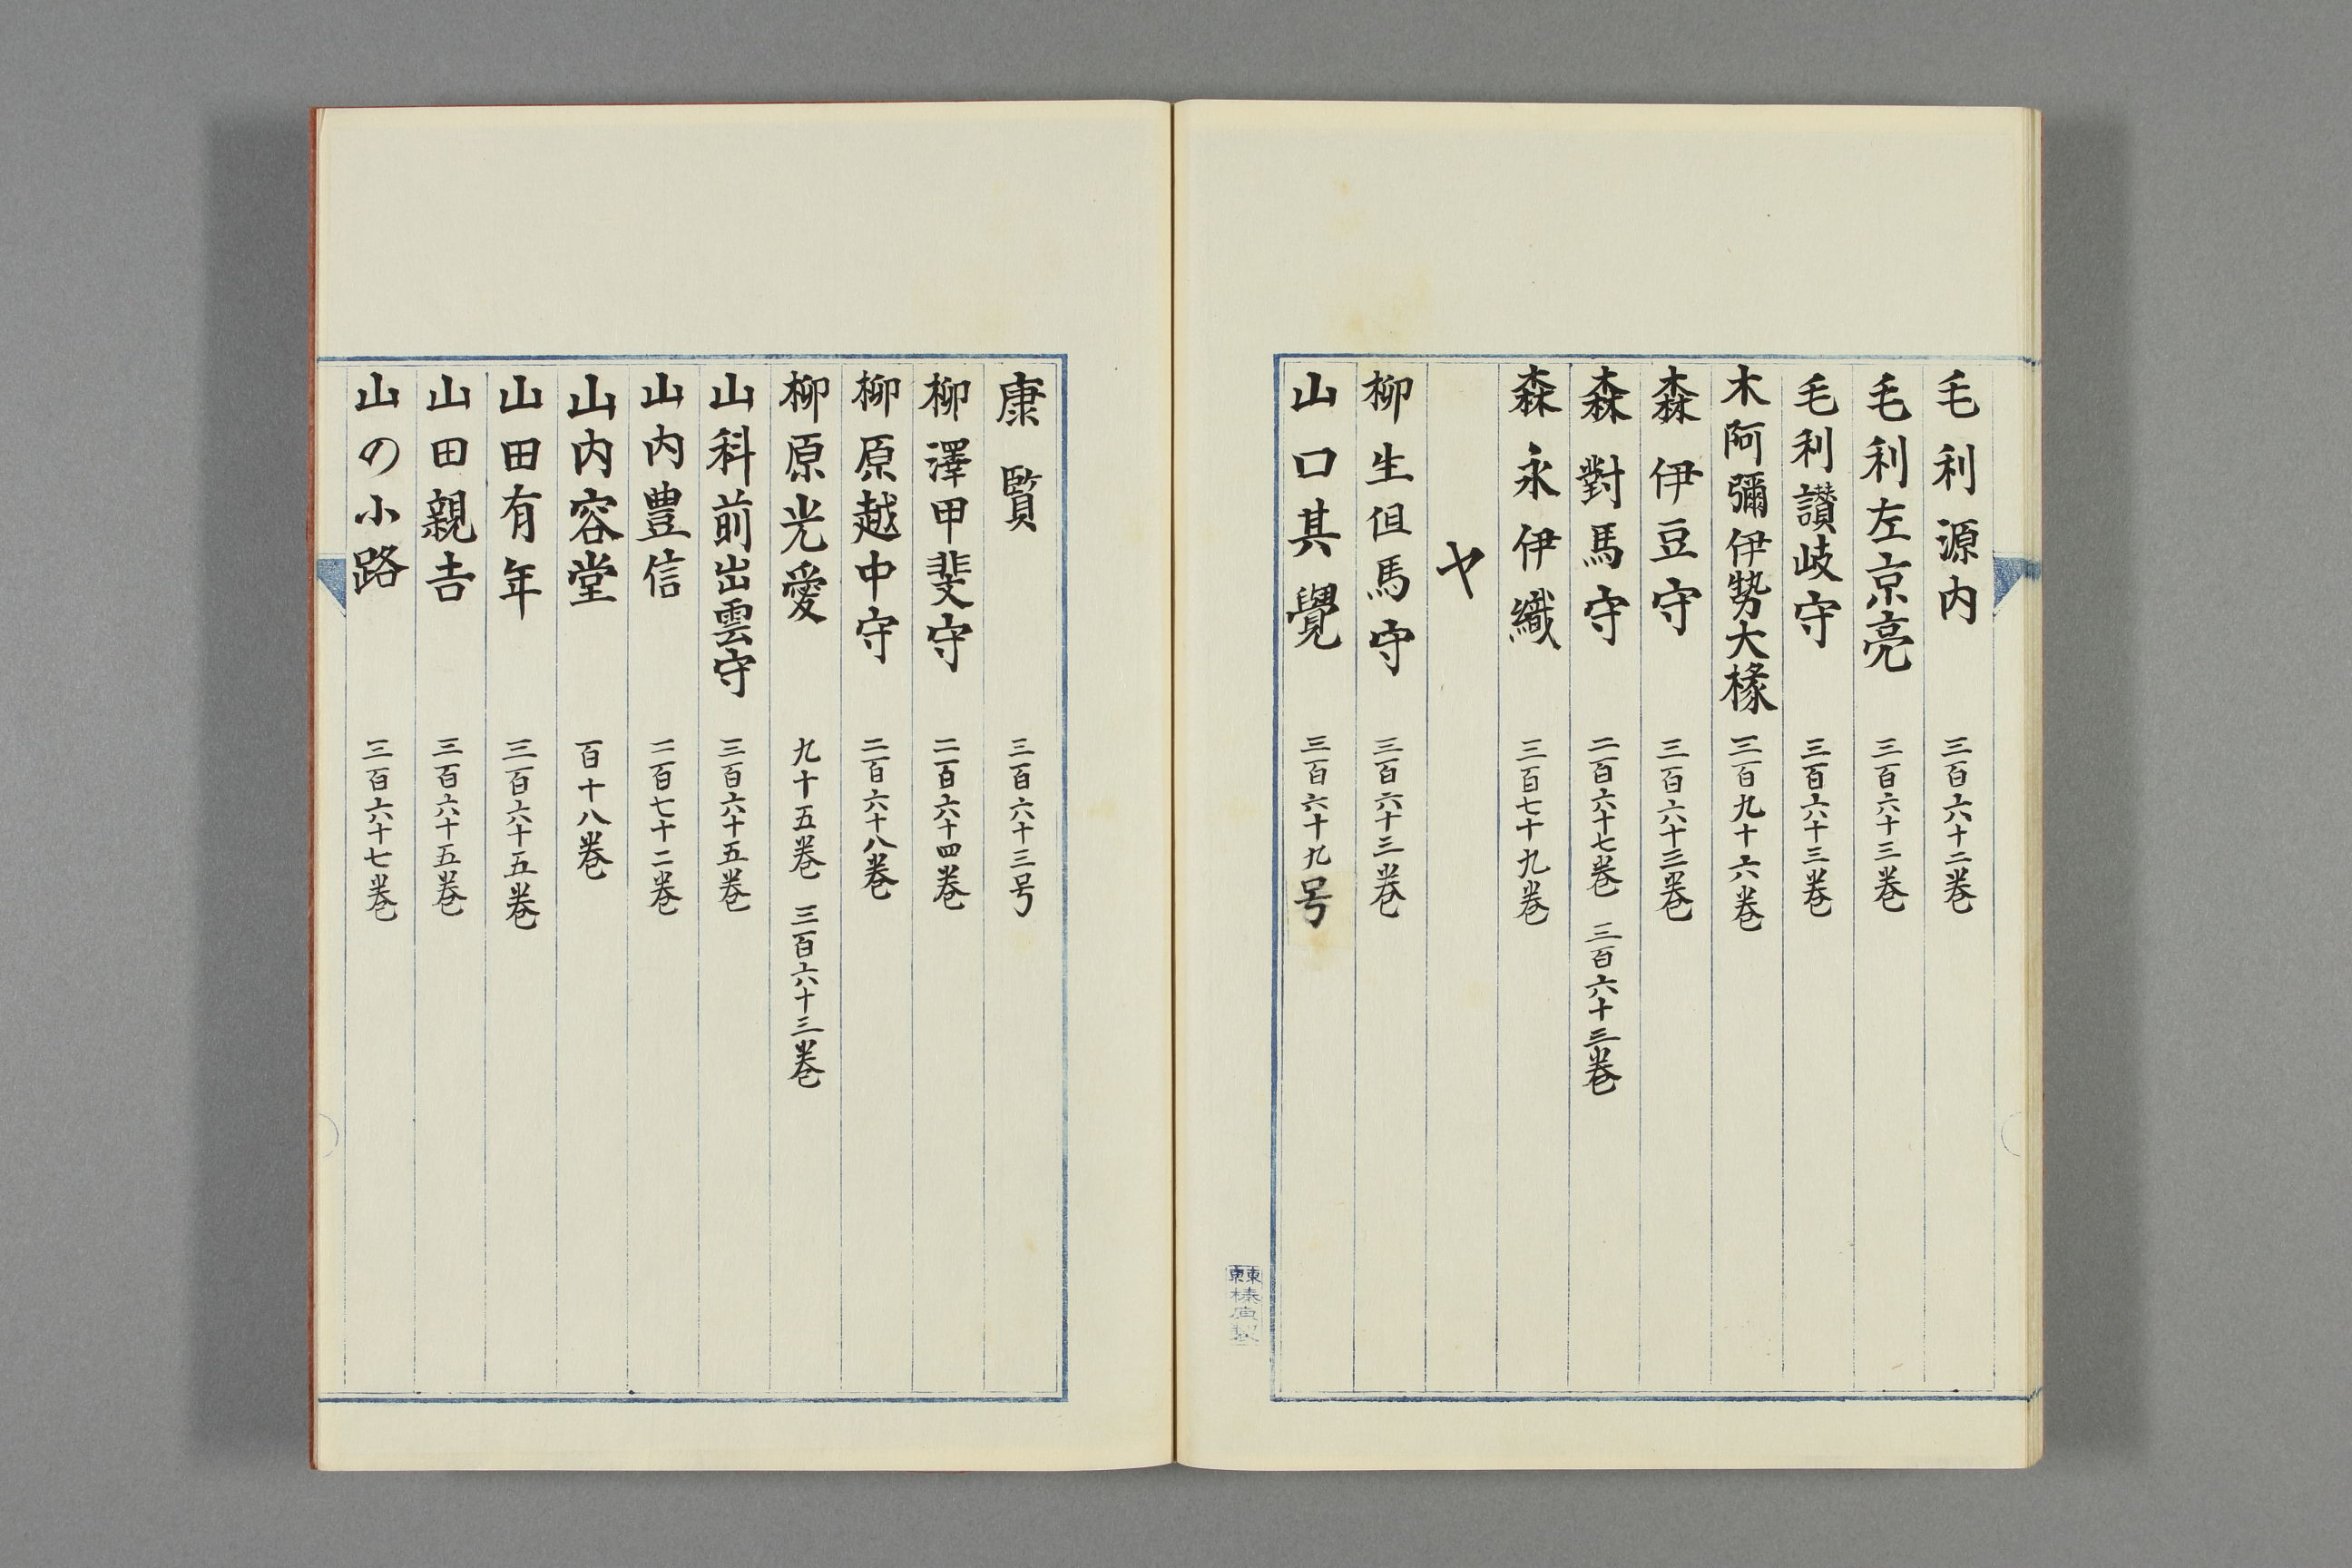 毛利源内 三百六十二巻
毛利左京亮 三百六十三巻
毛利讃岐守 三百六十三巻
木阿彌伊勢大椽 三百九十六巻
森伊豆守 三百六十三巻
森對馬守 二百六十七巻 三百六十三巻
森永伊織 三百七十九巻
ヤ
柳生但馬守 三百六十三巻
山口其覺 三百六十九号
東京榛原製
康賢 三百六十三号
柳澤甲斐守 二百六十四巻
柳原越中守 二百六十八巻
柳原光愛 九十五巻 三百六十三巻
山科前出雲守 三百六十五巻
山内豊信 二百七十二巻
山内容堂 百十八巻
山田有年 三百六十五巻
山田親吉 三百六十五巻
山の小路 三百六十七巻